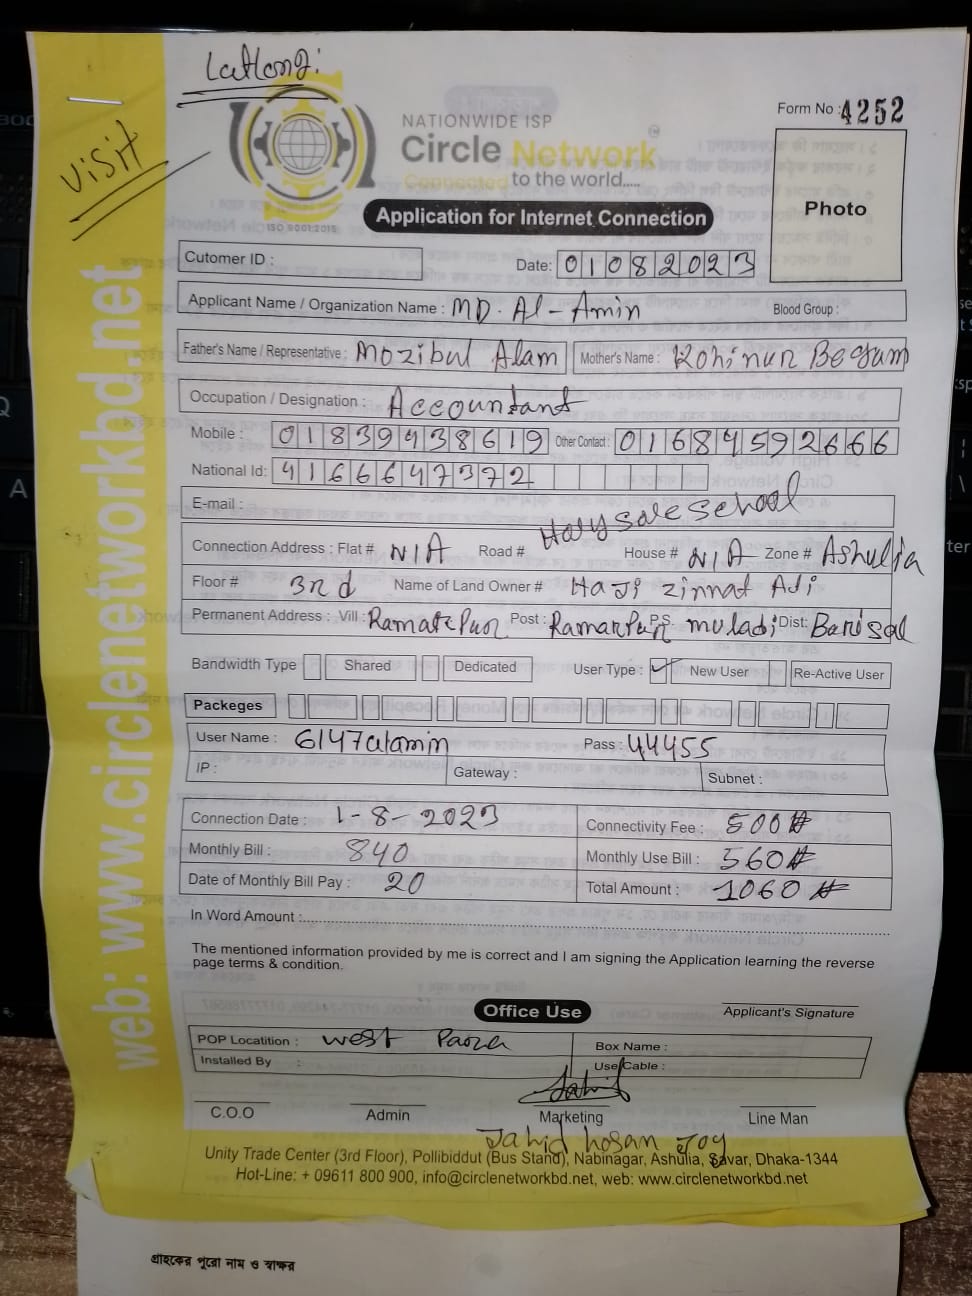 Latlong:
Visit
NATIONWIDE ISP
Circle Network
Connected to the world.....
ISO 9001:2015
Form No : 4252
Photo
Application for Internet Connection
Cutomer ID :
Date: 01082023
Applicant Name / Organization Name : MD. Al-Amin Blood Group :
Father's Name / Representative : Mozibul Alam Mother's Name : Kohinur Begum
Occupation / Designation : Accountant
Mobile : 01839438619 Other Contact : 01684592666
National Id: 4166647372
E-mail :
Connection Address : Flat # N/A Road # school House # N/A Zone # Ashulia
Floor # 3rd Name of Land Owner # Haji zinnat Ali
Permanent Address : Vill : Post : P.S. muladi Dist: Barisal
Bandwidth Type Shared Dedicated User Type : New User Re-Active User
Packeges
User Name : 6147alamin Pass : 44455
IP : Gateway : Subnet :
Connection Date : 1-8-2023 Connectivity Fee : 500
Monthly Bill : 840 Monthly Use Bill : 560
Date of Monthly Bill Pay : 20 Total Amount : 1060
In Word Amount :
The mentioned information provided by me is correct and I am signing the Application learning the reverse
page terms & condition.
Applicant's Signature
Office Use
POP Locatition : west Box Name :
Installed By : Use Cable :
C.O.O Admin Marketing Line Man
Jahid hosan Joy
Unity Trade Center (3rd Floor), Pollibiddut (Bus Stand), Nabinagar, Ashulia, Savar, Dhaka-1344
Hot-Line: + 09611 800 900, info@circlenetworkbd.net, web: www.circlenetworkbd.net
web: www.circlenetworkbd.net
গ্রাহকের পুরো নাম ও স্বাক্ষর